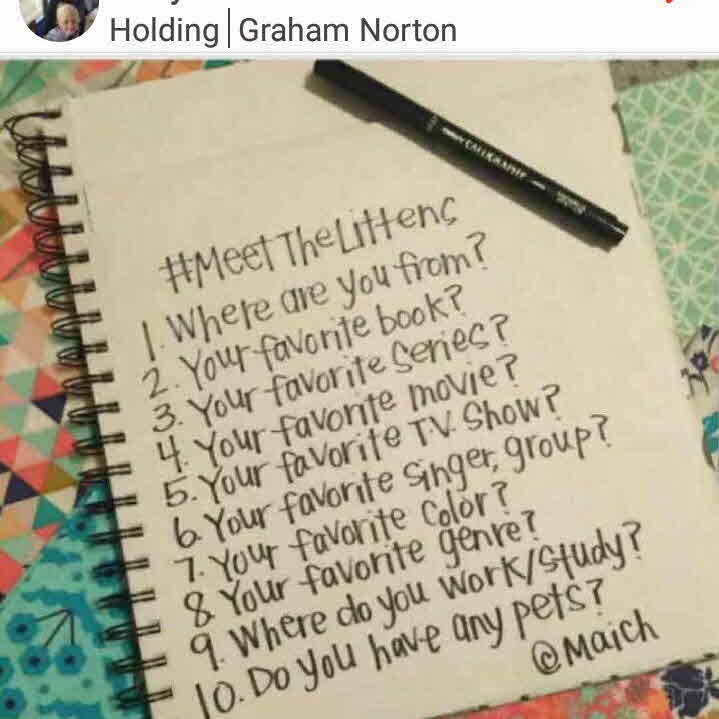 Holding|Graham Norton
CALLIGRAPHY
#MeetTheLittens
1. Where are you from?
2. Your favorite book?
3. Your favorite series?
4. Your favorite movie?
5. Your favorite T.V. Show?
6. Your favorite singer, group?
7. Your favorite color?
8. Your favorite genre?
9. Where do you work/study?
10. Do you have any pets?
@Maich